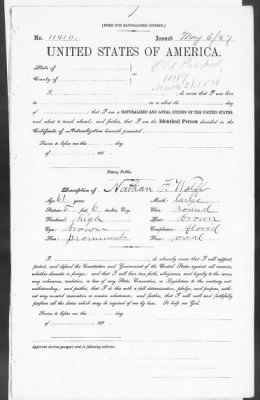 [FORM FOR NATURALIZED CITIZEN.]
No. 11410. Issued May 6/87
UNITED STATES OF AMERICA.
State of
County of
Old Passport
10117
March 21/
I, do swear that I was born
in on or about the day
of ; that I am a NATURALIZED AND LOYAL CITIZEN OF THE UNITED STATES,
and about to travel abroad; and further, that I am the Identical Person described in the
Certificate of Naturalization herewith presented.
Sworn to before me this day
of 188
Notary Public.
Description of Nathan F. Wolff
Age: 61 years Mouth: large
Stature: 5 feet, 6 inches, Eng. Chin: round
Forehead: high Hair: brown
Eyes: brown Complexion: florid
Nose: prominent Face: oval
I, do solemnly swear that I will support,
protect, and defend the Constitution and Government of the United States against all enemies,
whether domestic or foreign; and that I will bear true faith, allegiance, and loyalty to the same,
any ordinance, resolution, or law of any State, Convention, or Legislature to the contrary not-
withstanding; and further, that I do this with a full determination, pledge, and purpose, with-
out any mental reservation or evasion whatsoever; and further, that I will well and faithfully
perform all the duties which may be required of me by law. So help me God.
Sworn to before me this day
of 188
Applicant desires passport sent to following address: